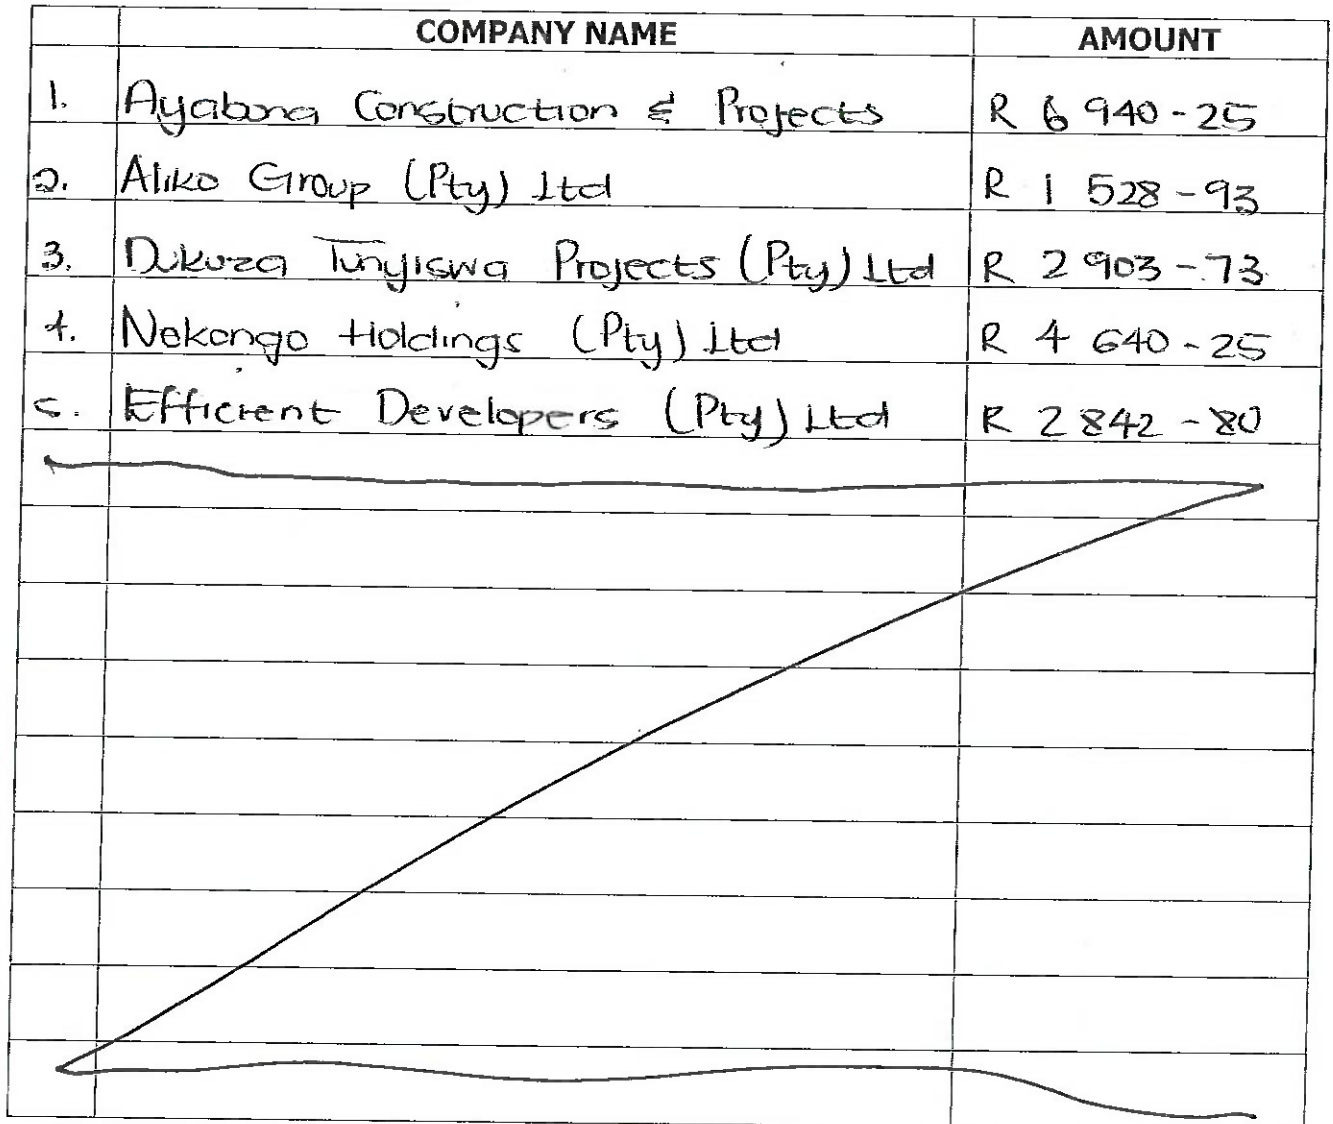 COMPANY NAME AMOUNT
1. Ayabona Construction & Projects R 6 940-25
2. Aliko Group (Pty) Ltd R 1 528-93
3. Dukuza Tinyiswa Projects (Pty) Ltd R 2 903-73
4. Nokongo Holdings (Pty) Ltd R 4 640-25
5. Efficient Developers (Pty) Ltd R 2 842-80